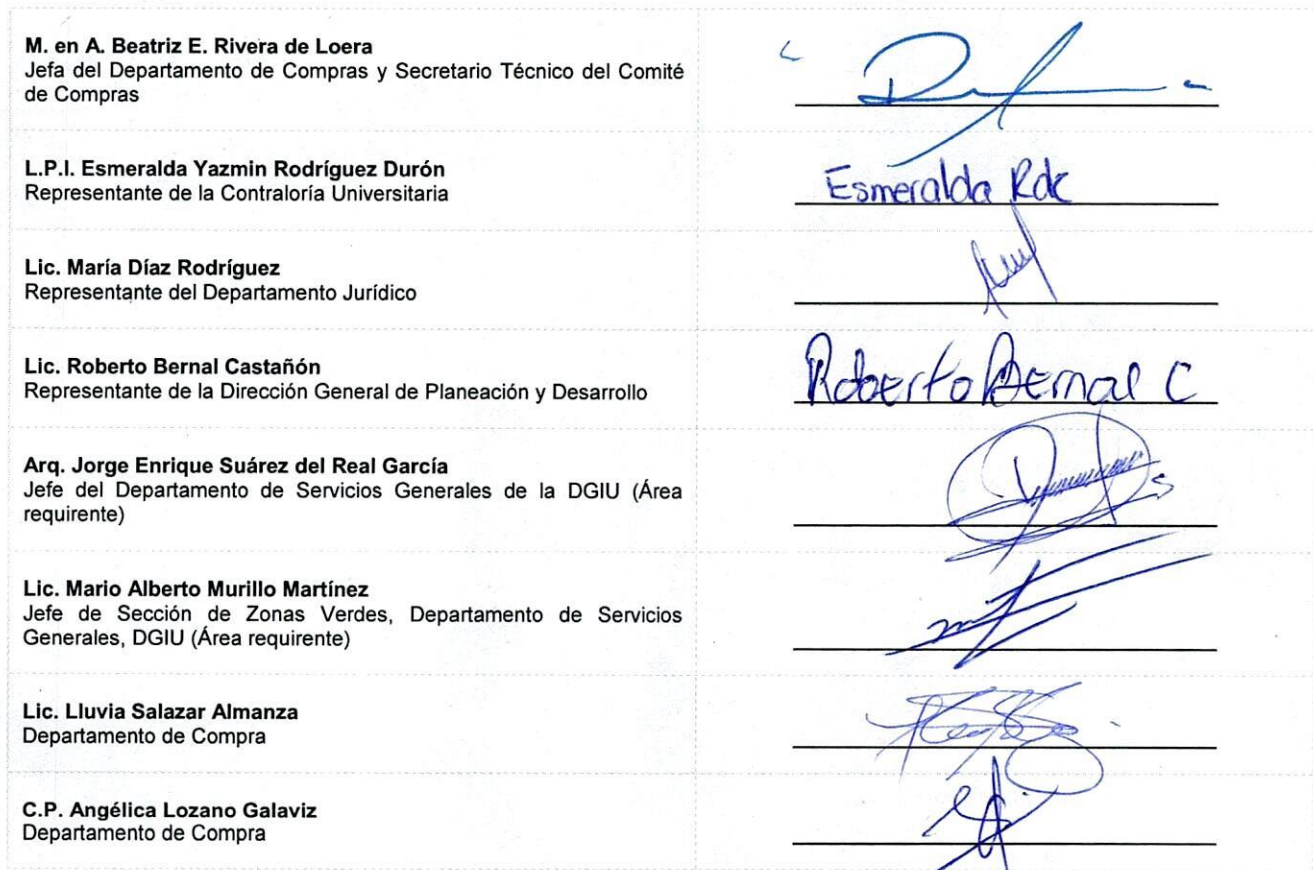 M. en A. Beatriz E. Rivera de Loera
Jefa del Departamento de Compras y Secretario Técnico del Comité
de Compras
L.P.I. Esmeralda Yazmin Rodríguez Durón
Representante de la Contraloría Universitaria
Esmeralda Rdz
Lic. María Díaz Rodríguez
Representante del Departamento Jurídico
Lic. Roberto Bernal Castañón
Representante de la Dirección General de Planeación y Desarrollo
Roberto Bernal C
Arq. Jorge Enrique Suárez del Real García
Jefe del Departamento de Servicios Generales de la DGIU (Área
requirente)
Lic. Mario Alberto Murillo Martínez
Jefe de Sección de Zonas Verdes, Departamento de Servicios
Generales, DGIU (Área requirente)
Lic. Lluvia Salazar Almanza
Departamento de Compra
C.P. Angélica Lozano Galaviz
Departamento de Compra